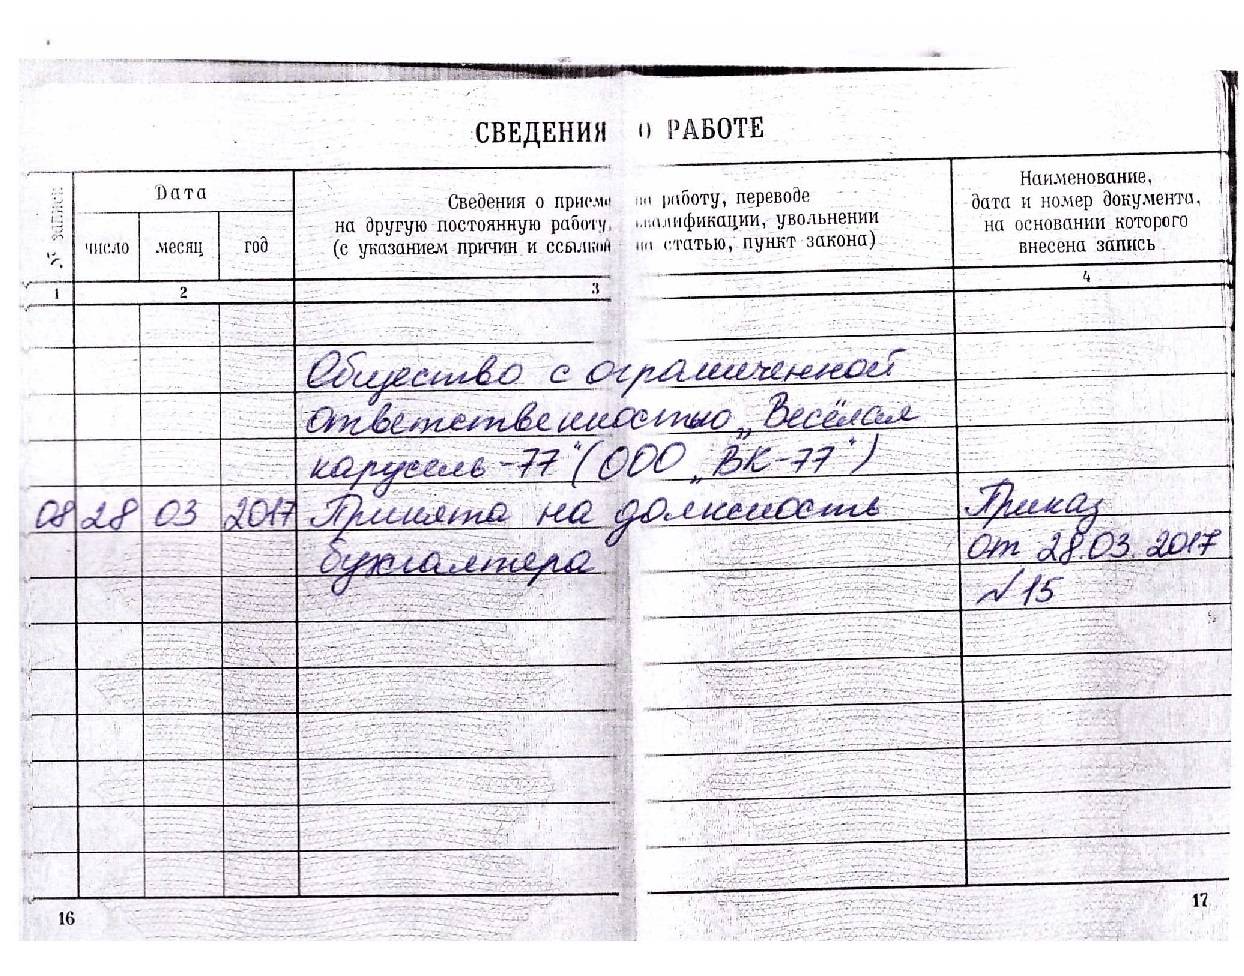 СВЕДЕНИЯ О РАБОТЕ
№ записи
Дата
число месяц год
Сведения о приеме на работу, переводе
на другую постоянную работу, квалификации, увольнении
(с указанием причин и ссылкой на статью, пункт закона)
Наименование,
дата и номер документа,
на основании которого
внесена запись
1 2 3 4
Общество с ограниченной
ответственностью „Весёлая
карусель-77“ (ООО „ВК-77“)
08 28 03 2017 Принята на должность Приказ
бухгалтера от 28.03.2017
№15
16 17